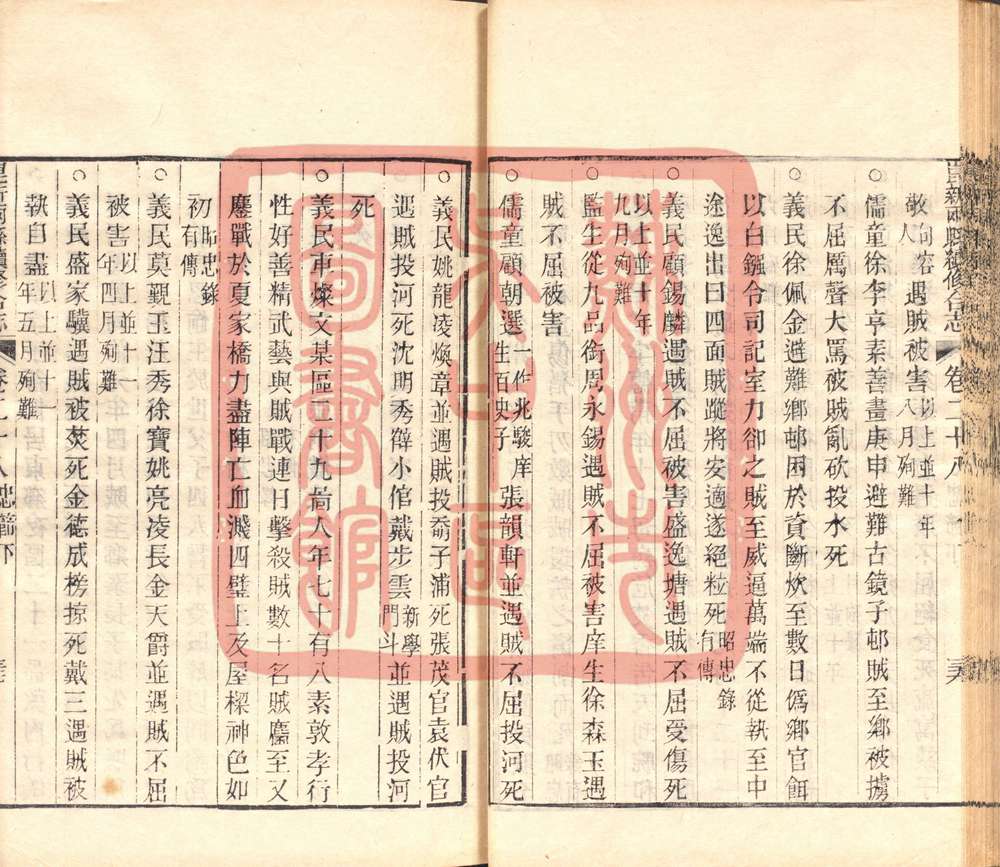 崑新兩縣續修合志 卷二十八
敬人句容遇賊被害以上並十年八月殉難
○儒童徐李亭素善畫庚申避難古鏡子邨賊至鄉被擄
不屈厲聲大罵被賊亂砍投水死
○義民徐佩金避難鄉邨困於資斷炊至數日僞鄉官餌
以白鏹令司記室力卻之賊至威逼萬端不從執至中
途逸出曰四面賊蹤將安適遂絕粒死昭忠錄有傳
○義民顧錫麟遇賊不屈被害盛逸塘遇賊不屈受傷死
以上並十年九月殉難
○監生從九品銜周永錫遇賊不屈被害庠生徐森玉遇
賊不屈被害
○儒童顧朝選一作兆駿庠生百史子張韻軒並遇賊不屈投河死
○義民姚龍凌煥章並遇賊投喬子浦死張茂官袁伏官
遇賊投河死沈明秀薛小倌戴步雲新學門斗並遇賊投河
死
○義民車燦文某區正十九喬人年七十有八素敦孝行
性好善精武藝與賊戰連日擊殺賊數十名賊麕至又
鏖戰於夏家橋力盡陣亡血濺四壁上及屋樑神色如
初昭忠錄有傳
○義民莫觀玉汪秀徐寶姚亮凌長金天爵並遇賊不屈
被害以上並十一年四月殉難
○義民盛家驥遇賊被焚死金德成榜掠死戴三遇賊被
執自盡以上並十一年五月殉難